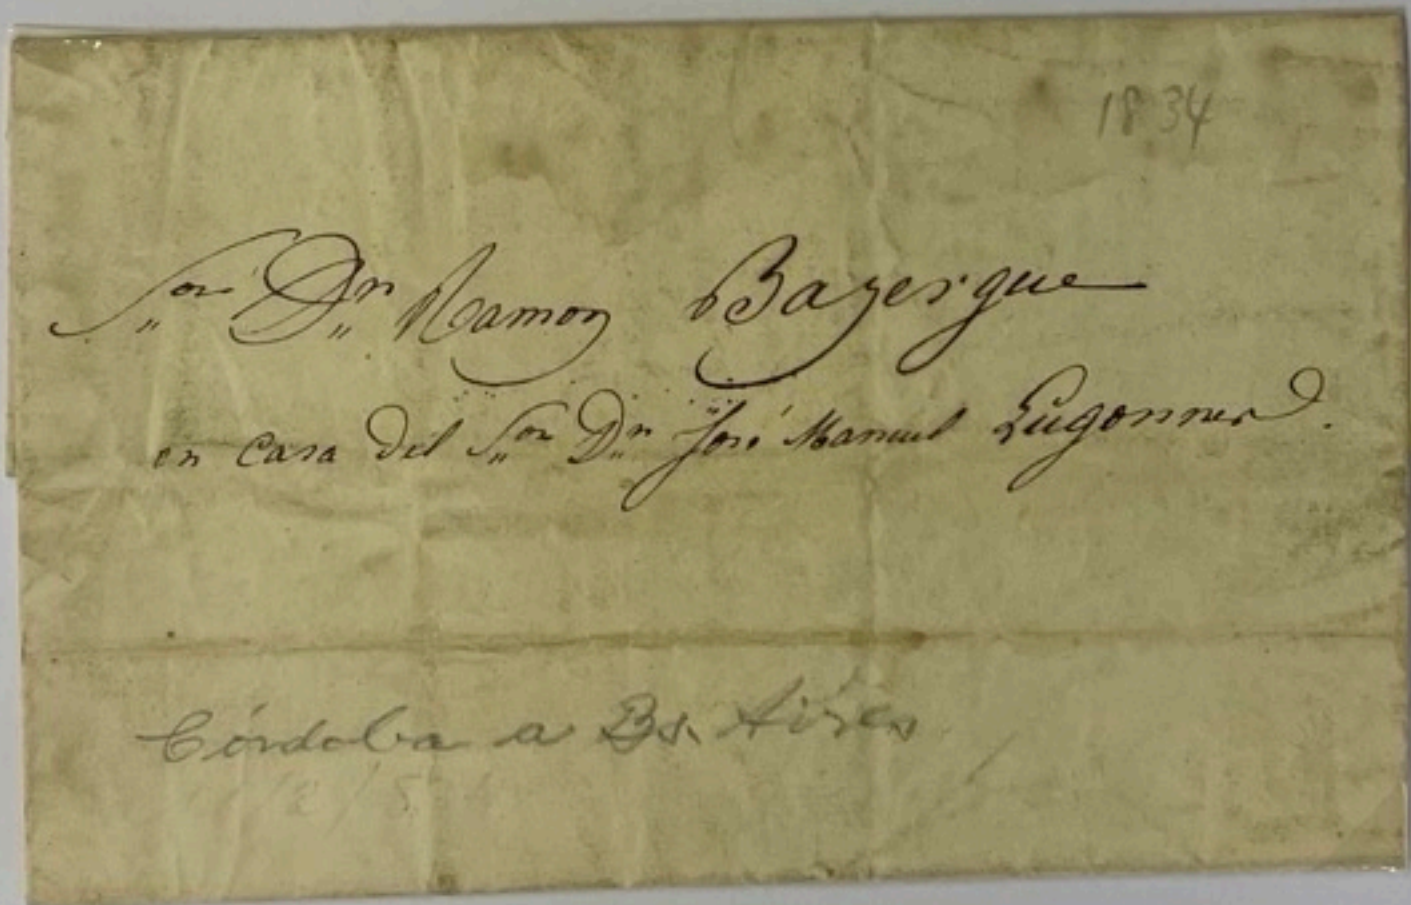 1834
Sor Dn Ramon Bayergue
en casa del Sor Dn José Manuel Lugonnes.
Córdoba a Bs. Aires